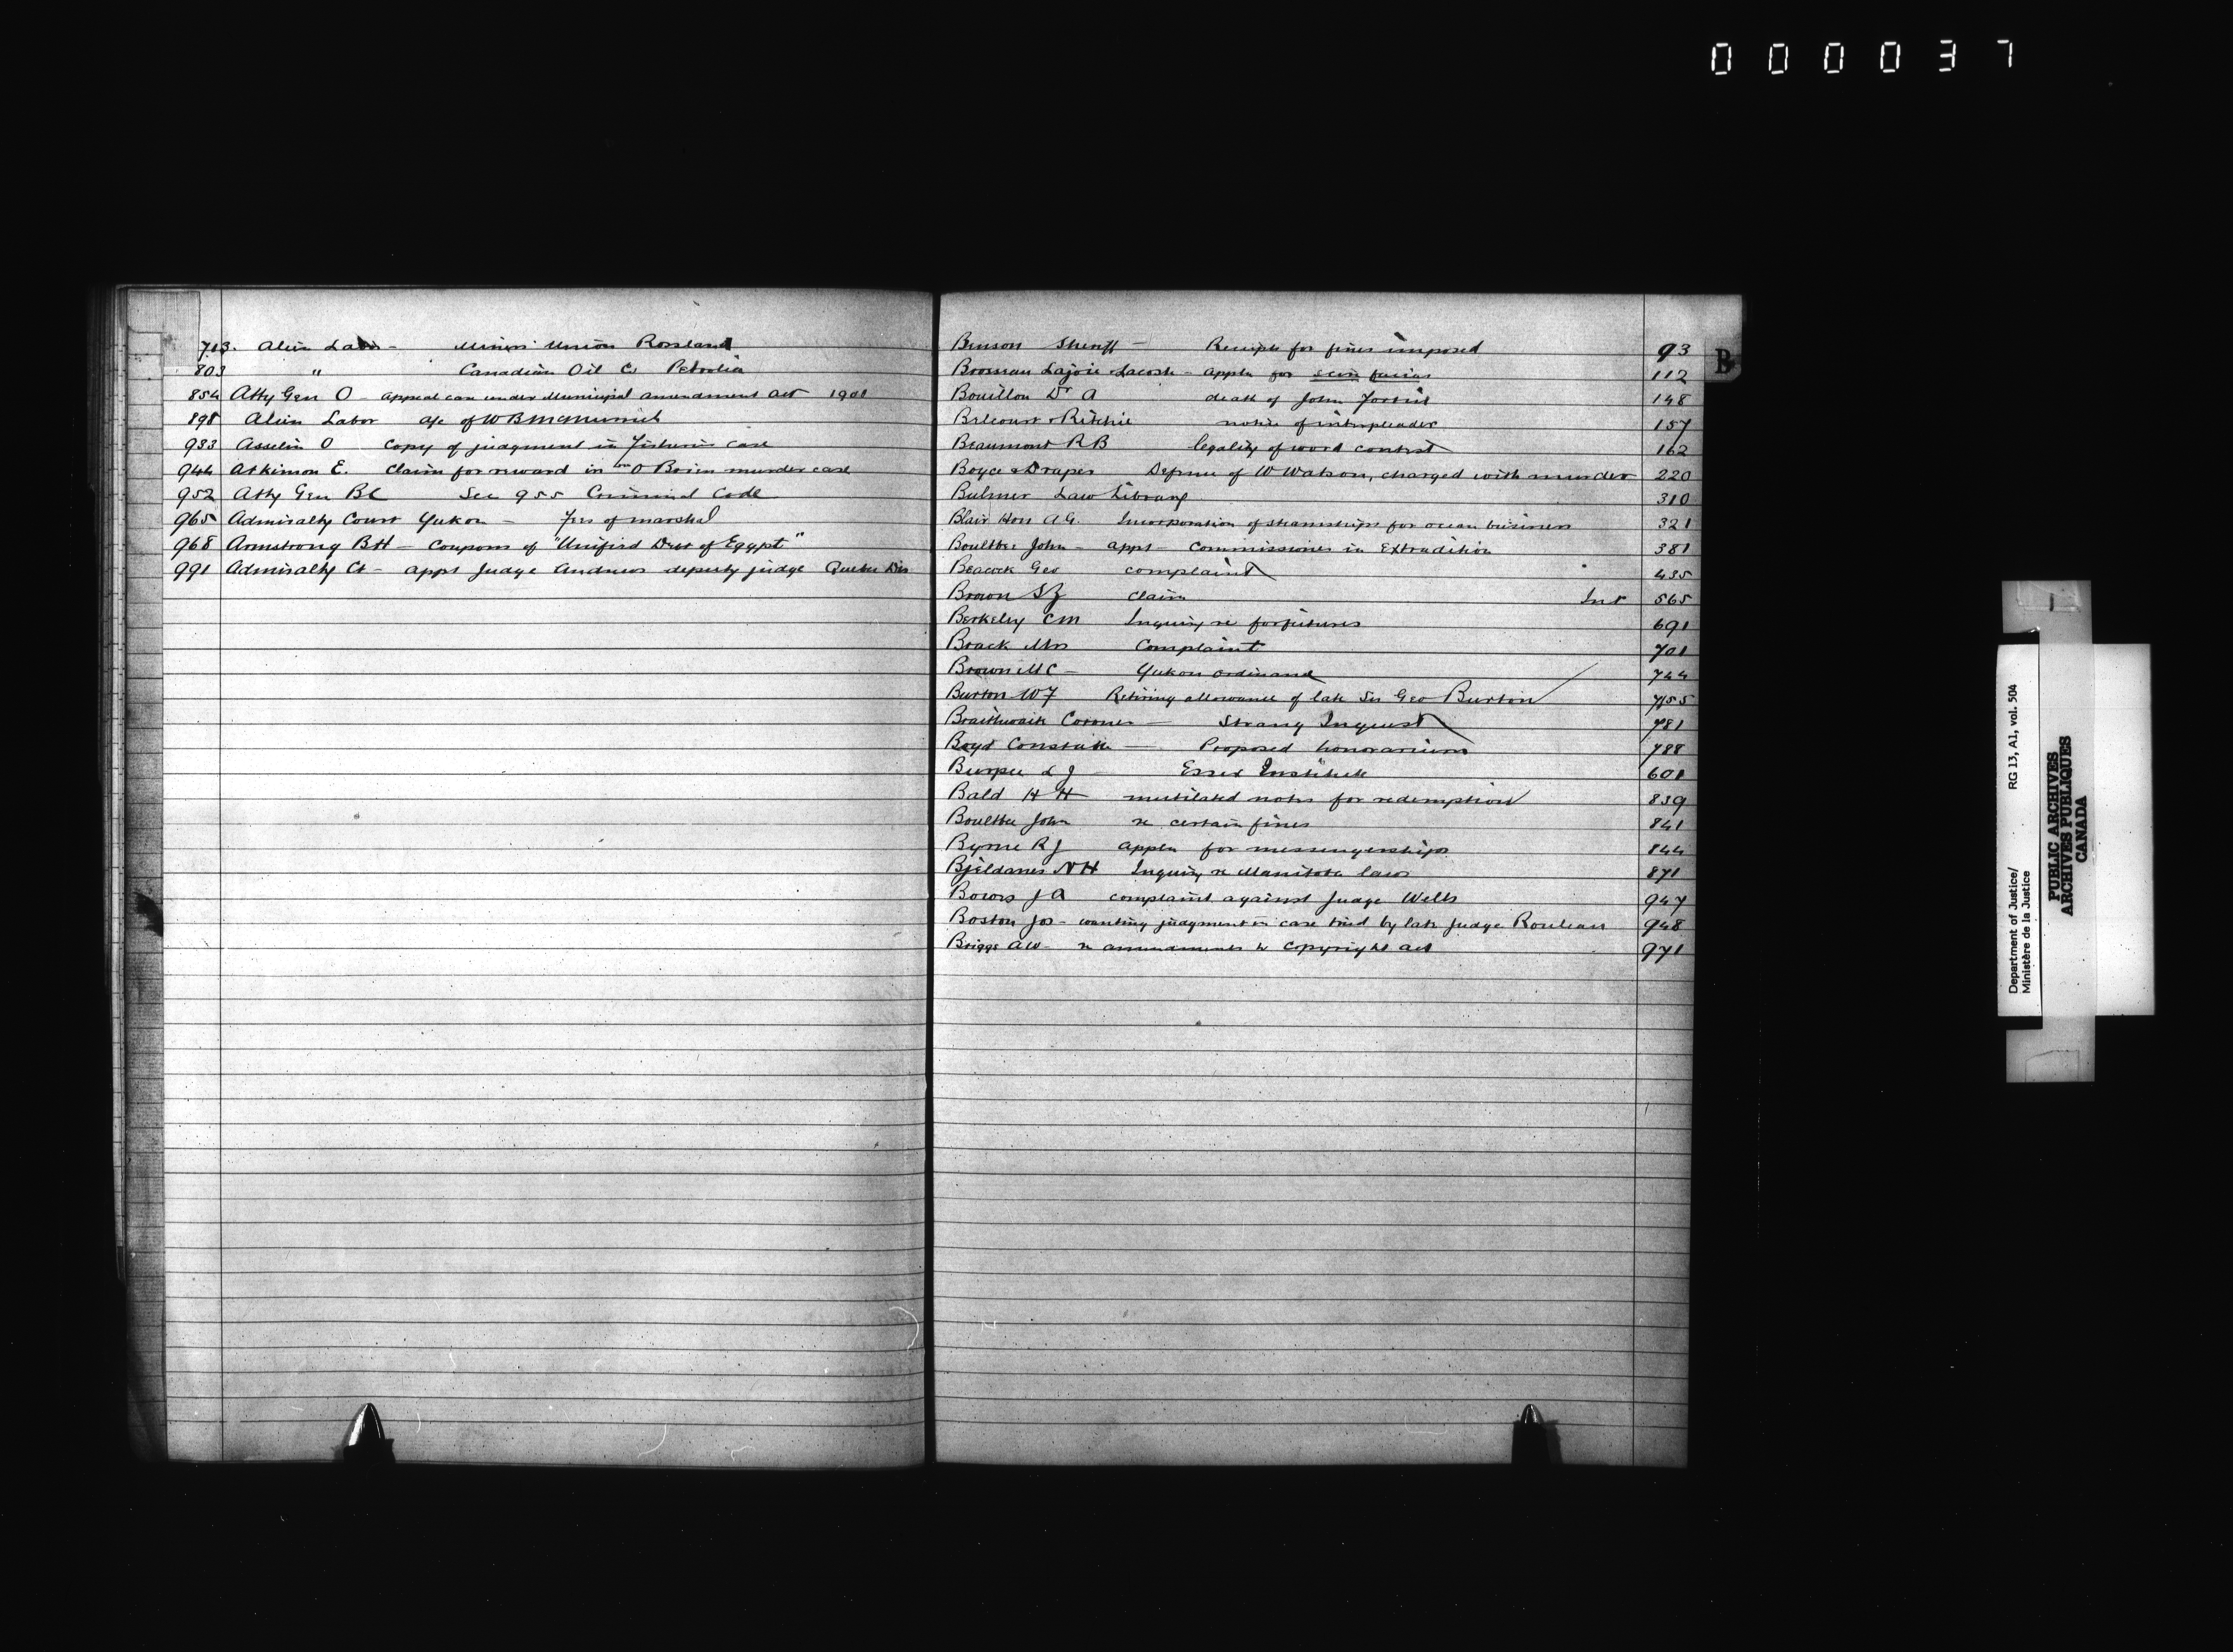 000037
713. Alien Labor - Miners Union Rossland
803 " Canadian Oil Co Petrolia
854 Atty Gen O - appeal case under Municipal amendment act 1901
898 Alien Labor a/c of W B McMurrich
933 Asselin O Copy of judgment in Fisheries case
944 Atkinson E. Claim for reward in O'Brien murder case
952 Atty Gen BC Sec 955 Criminal Code
965 Admiralty Court Yukon - Fees of marshal
968 Armstrong BH - Coupons of "Unified Debt of Egypt"
991 Admiralty Ct - appt Judge Andrews deputy judge Quebec Dis
B
Benson Sheriff - Receipts for fines imposed 93
Boosman Lajoie Lacoste - appln for scire facias 112
Bouillon Dr A death of John Fortin 148
Belcourt & Ritchie notice of interpleader 157
Beaumont RB legality of word contest 162
Boyce & Draper Defence of W Watson, charged with murder 220
Bulmer Law Library 310
Blair Hon AG. Incorporation of steamships for ocean business 321
Boultbee John - appt - Commissioner in Extradition 381
Beacock Geo complaint 435
Brown SZ claim Int 565
Berkeley CM Inquiry re forfeitures 691
Brack Mrs Complaint 701
Brown MC - Yukon ordinance 744
Burton WF Retiring allowance of late Sir Geo Burton 755
Braithwaite Coroner - Strang Inquest 781
Boyd Constable - Proposed honorarium 788
Burpee L J - Essex Institute 601
Bald H H mutilated notes for redemption 839
Boultbee John re certain fines 841
Byrne RJ appln for messengership 844
Bjeldanes NH Inquiry re Manitoba laws 871
Bowes J A complaint against Judge Wells 947
Boston Jos - wanting judgment in case tried by late Judge Rouleau 948
Briggs AW - re amendments to Copyright act 971
Department of Justice/ RG 13, A1, vol. 504
Ministère de la Justice
PUBLIC ARCHIVES
ARCHIVES PUBLIQUES
CANADA